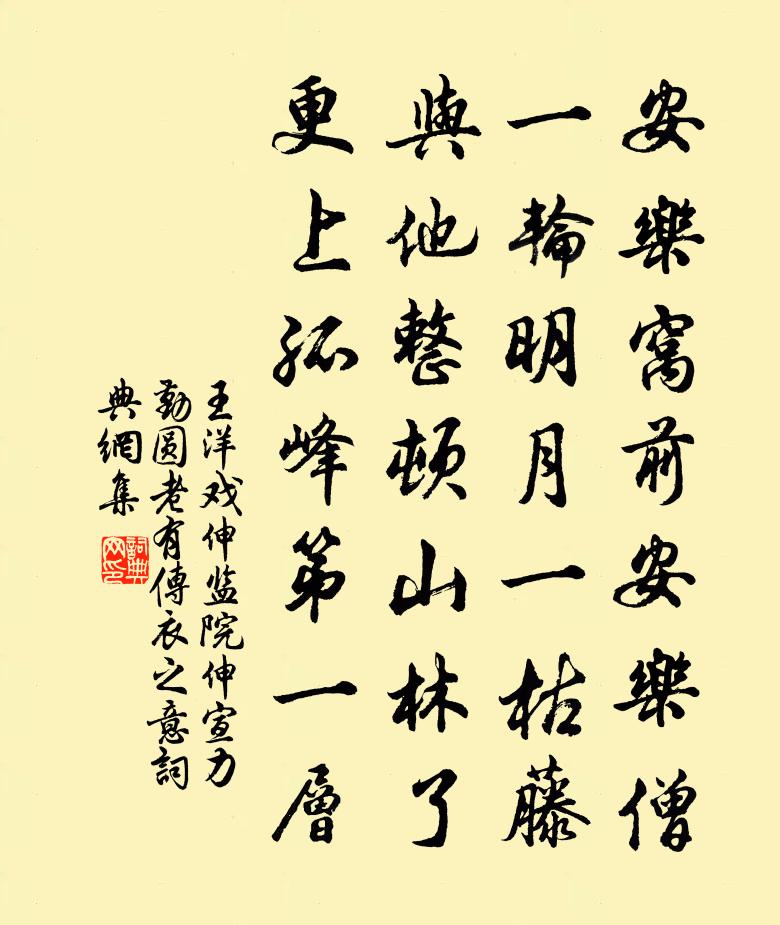 安樂窩前安樂僧
一輪明月一枯藤
與他整頓山林了
更上孤峰第一層
王洋戏伸监院伸宣力
勤圆老有傳衣之意詞
典網集
詞典
网印